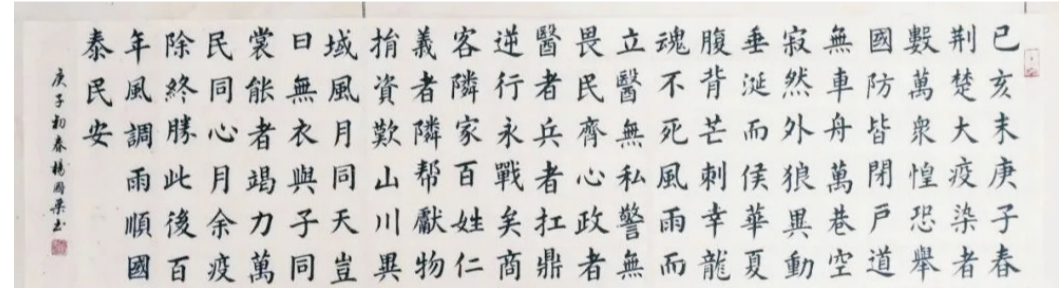 己亥末庚子春
荆楚大疫染者
數萬衆惶恐舉
國防皆閉戶道
無車舟萬巷空
寂然外狼異動
垂涎而侯華夏
腹背芒刺幸龍
魂不死風雨而
立醫無私警無
畏民齊心政者
醫者兵者扛鼎
逆行永戰矣商
客隣家百姓仁
義者隣帮獻物
捐資歎山川異
域風月同天豈
曰無衣與子同
裳能者竭力萬
民同心月余疫
除終勝此後百
年風調雨順國
泰民安
庚子初春楊